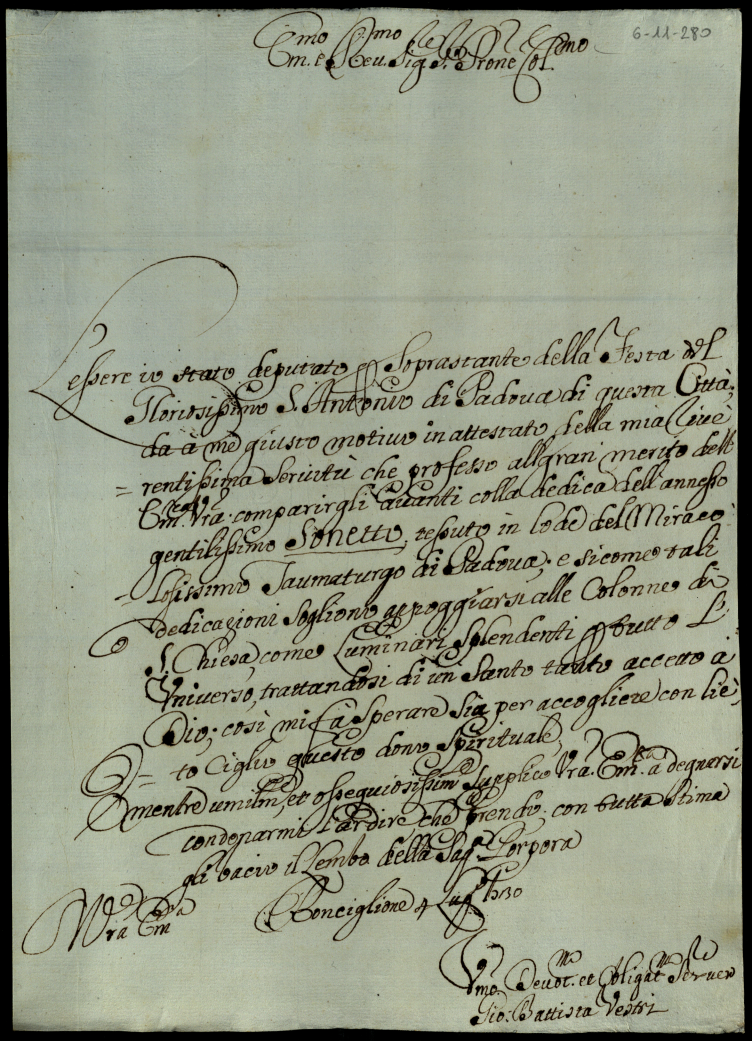 6-11-280
Em.mo e Rev.mo Sig.re Sig.r Prone Col.mo
L'essere io stato deputato Soprastante della Festa del
Gloriosissimo S. Antonio di Padova di questa Città,
da à me giusto motivo in attestato della mia rive=
=rentissima servitù che professo all gran merito dell
Em.za Vra. comparirgli avanti colla dedica dell annesso
gentilissimo Sonetto, tessuto in lode del Miraco=
=losissimo Taumaturgo di Padova, e sicome tali
dedicazioni sogliono appoggiarsi alle Colonne di
S. Chiesa, come Luminari splendenti per tutto L'
Universo, trattandosi di un Santo tanto accetto a
Dio; così mi fà sperare sia per accogliere con lie=
=to Ciglio questo dono spirituale,
mentre umilm.e, et ossequiosissim.e supplico Vra. Em.za a degnarsi
condonarmi l'ardire che prendo, con tutta stima
gli bacio il Lembo della Sag.ra Porpora
Vra Em.za
Ronciglione 4 Lug.o 1730
Vmo. Devot.mo et Obligat.mo Servo
Gio: Battista Vestri